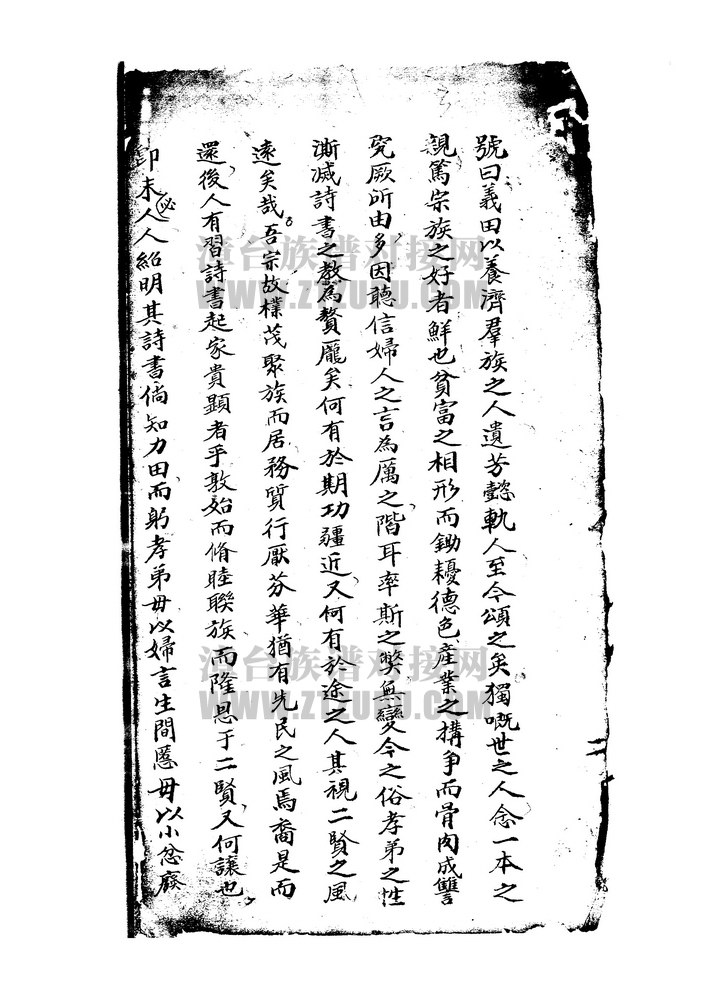 號曰義田以養濟羣族之人遺芳懿軌人至今頌之矣獨嘅世之人念一本之
親篤宗族之好者鮮也貧富之相形而鋤耰德色産業之搆争而骨肉成讐
究厥所由多因聽信婦人之言為厲之階耳率斯之弊無變今之俗孝弟之性
澌滅詩書之教為贅龐矣何有於期功疆近又何有於途之人其視二賢之風
遠矣哉吾宗故樸茂聚族而居務質行厭芬華猶有先民之風焉裔是而
還後人有習詩書起家貴顯者乎敦始而脩睦聯族而隆恩于二賢又何讓也
即未必人人紹明其詩書倘知力田而躬孝弟毋以婦言生間慝毋以小忿廢
漳台族谱对接网
WWW.ZTZUPU.COM
漳台族谱对接网
WWW.ZTZUPU.COM